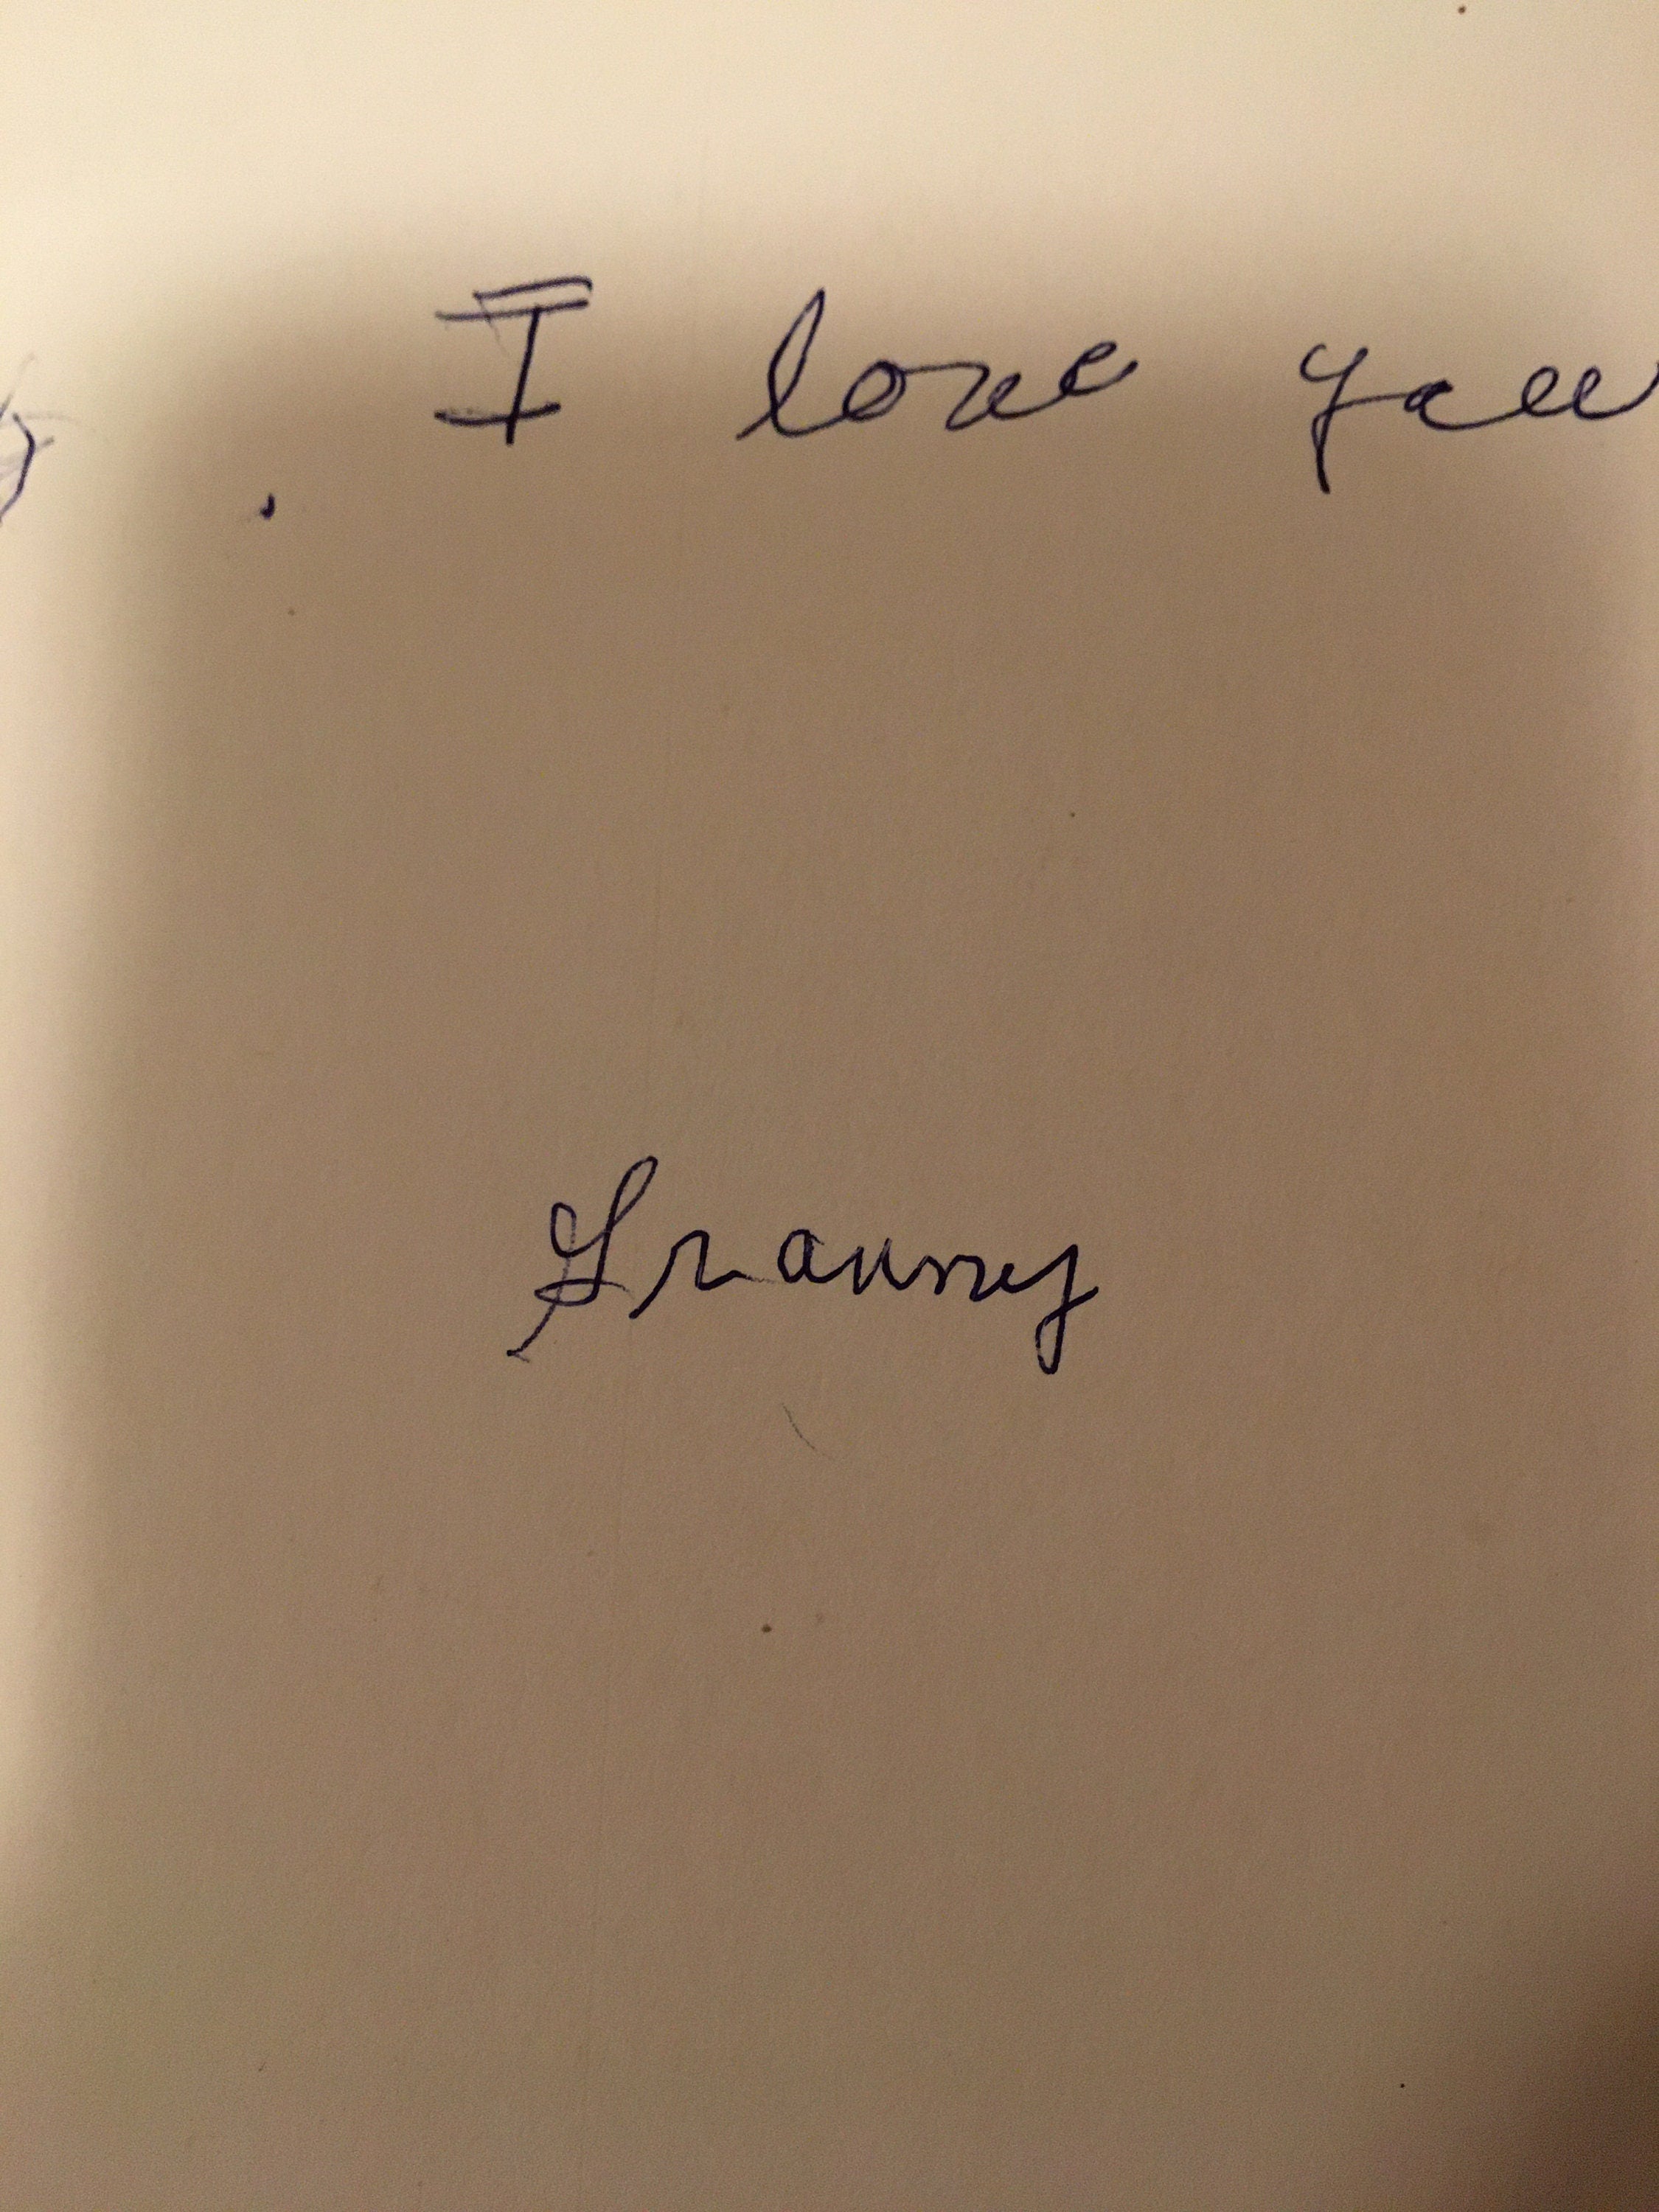 . I love you
Granny